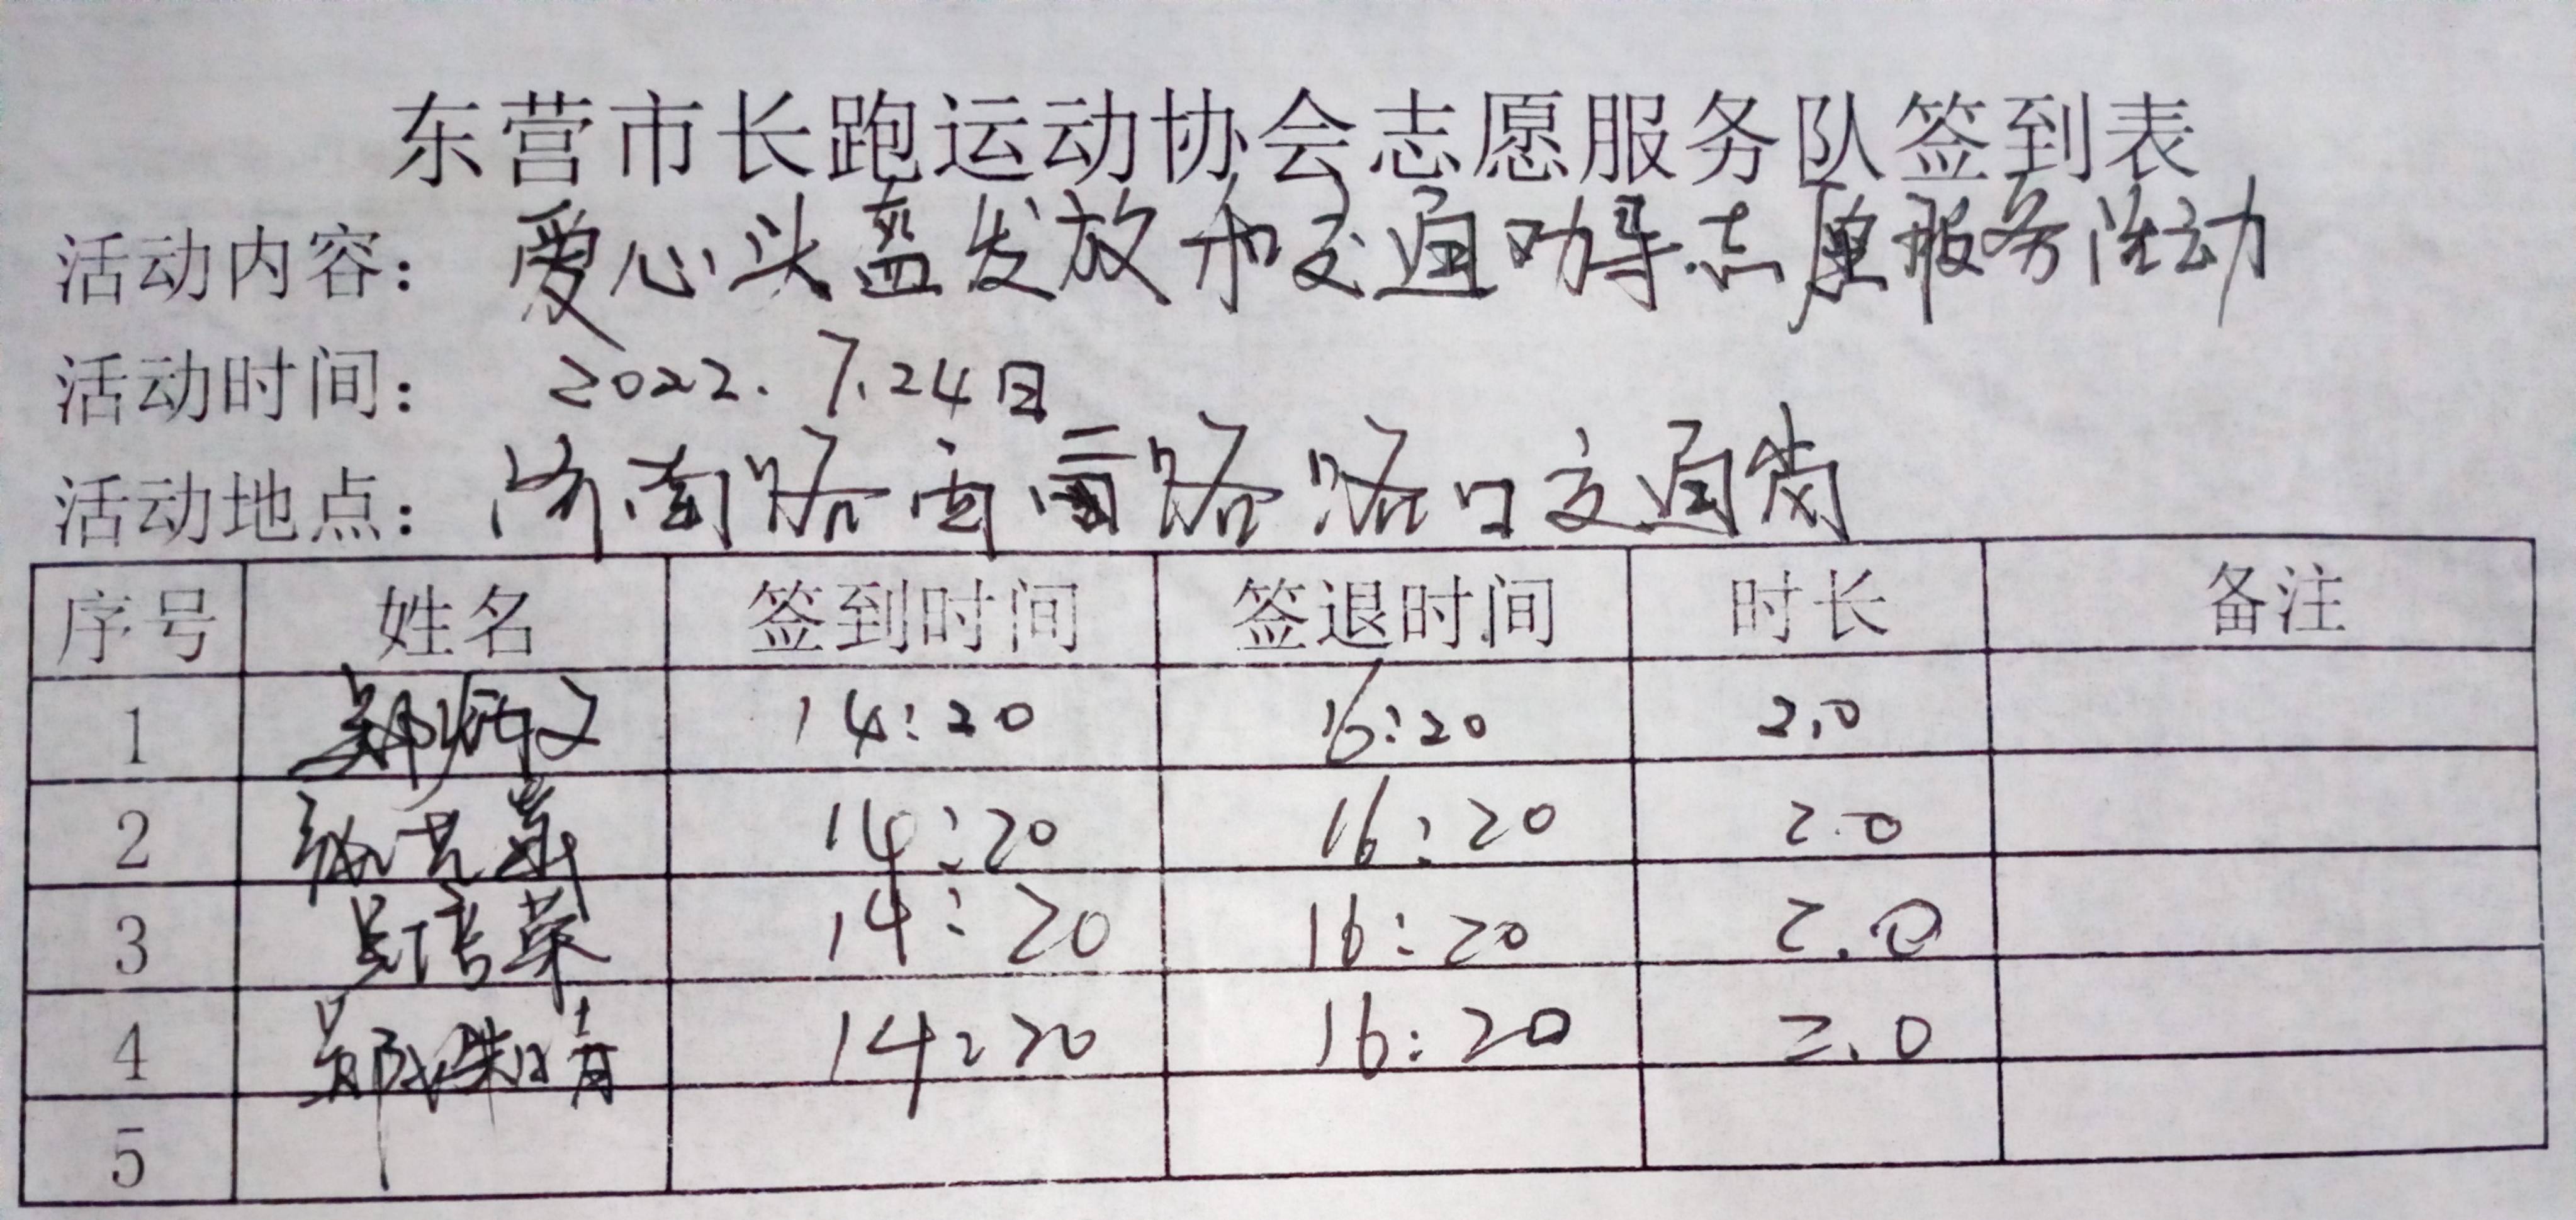 东营市长跑运动协会志愿服务队签到表
活动内容: 爱心头盔发放和交通劝导志愿服务活动
活动时间: 2022.7.24日
活动地点: 济南路西二路路口交通岗
序号 姓名 签到时间 签退时间 时长 备注
1 郑炳文 14:20 16:20 2.0
2 14:20 16:20 2.0
3 吴传荣 14:20 16:20 2.0
4 14:20 16:20 2.0
5